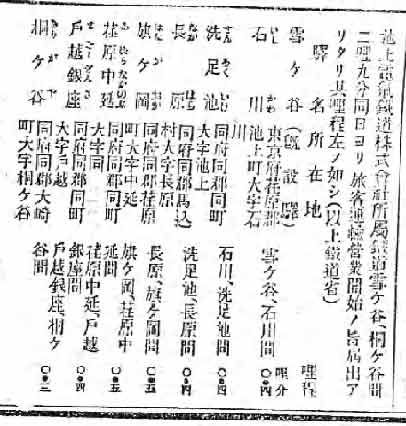 池上電氣鐵道株式會社所屬鐵道雪ケ谷、桐ケ谷間
二哩九分同日ヨリ旅客運輸營業開始ノ旨屆出ア
リタリ其哩程左ノ如シ(以上鐵道省)
驛名 所在地 哩程
雪ケ谷(既設驛) 哩分
石川 東京府荏原郡池上町大字石川 雪ケ谷、石川間 〇・四
洗足池 同府同郡同町大字池上 石川、洗足池間 〇・四
長原 同府同郡馬込村大字長原 洗足池、長原間 〇・四
旗ケ岡 同府同郡荏原町大字中延 長原、旗ケ岡間 〇・五
荏原中延 同府同郡同町大字同 旗ケ岡、荏原中延間 〇・五
戸越銀座 同府同郡同町大字戸越 荏原中延、戸越銀座間 〇・四
桐ケ谷 同府同郡大崎町大字桐ケ谷 戸越銀座、桐ケ谷間 〇・三